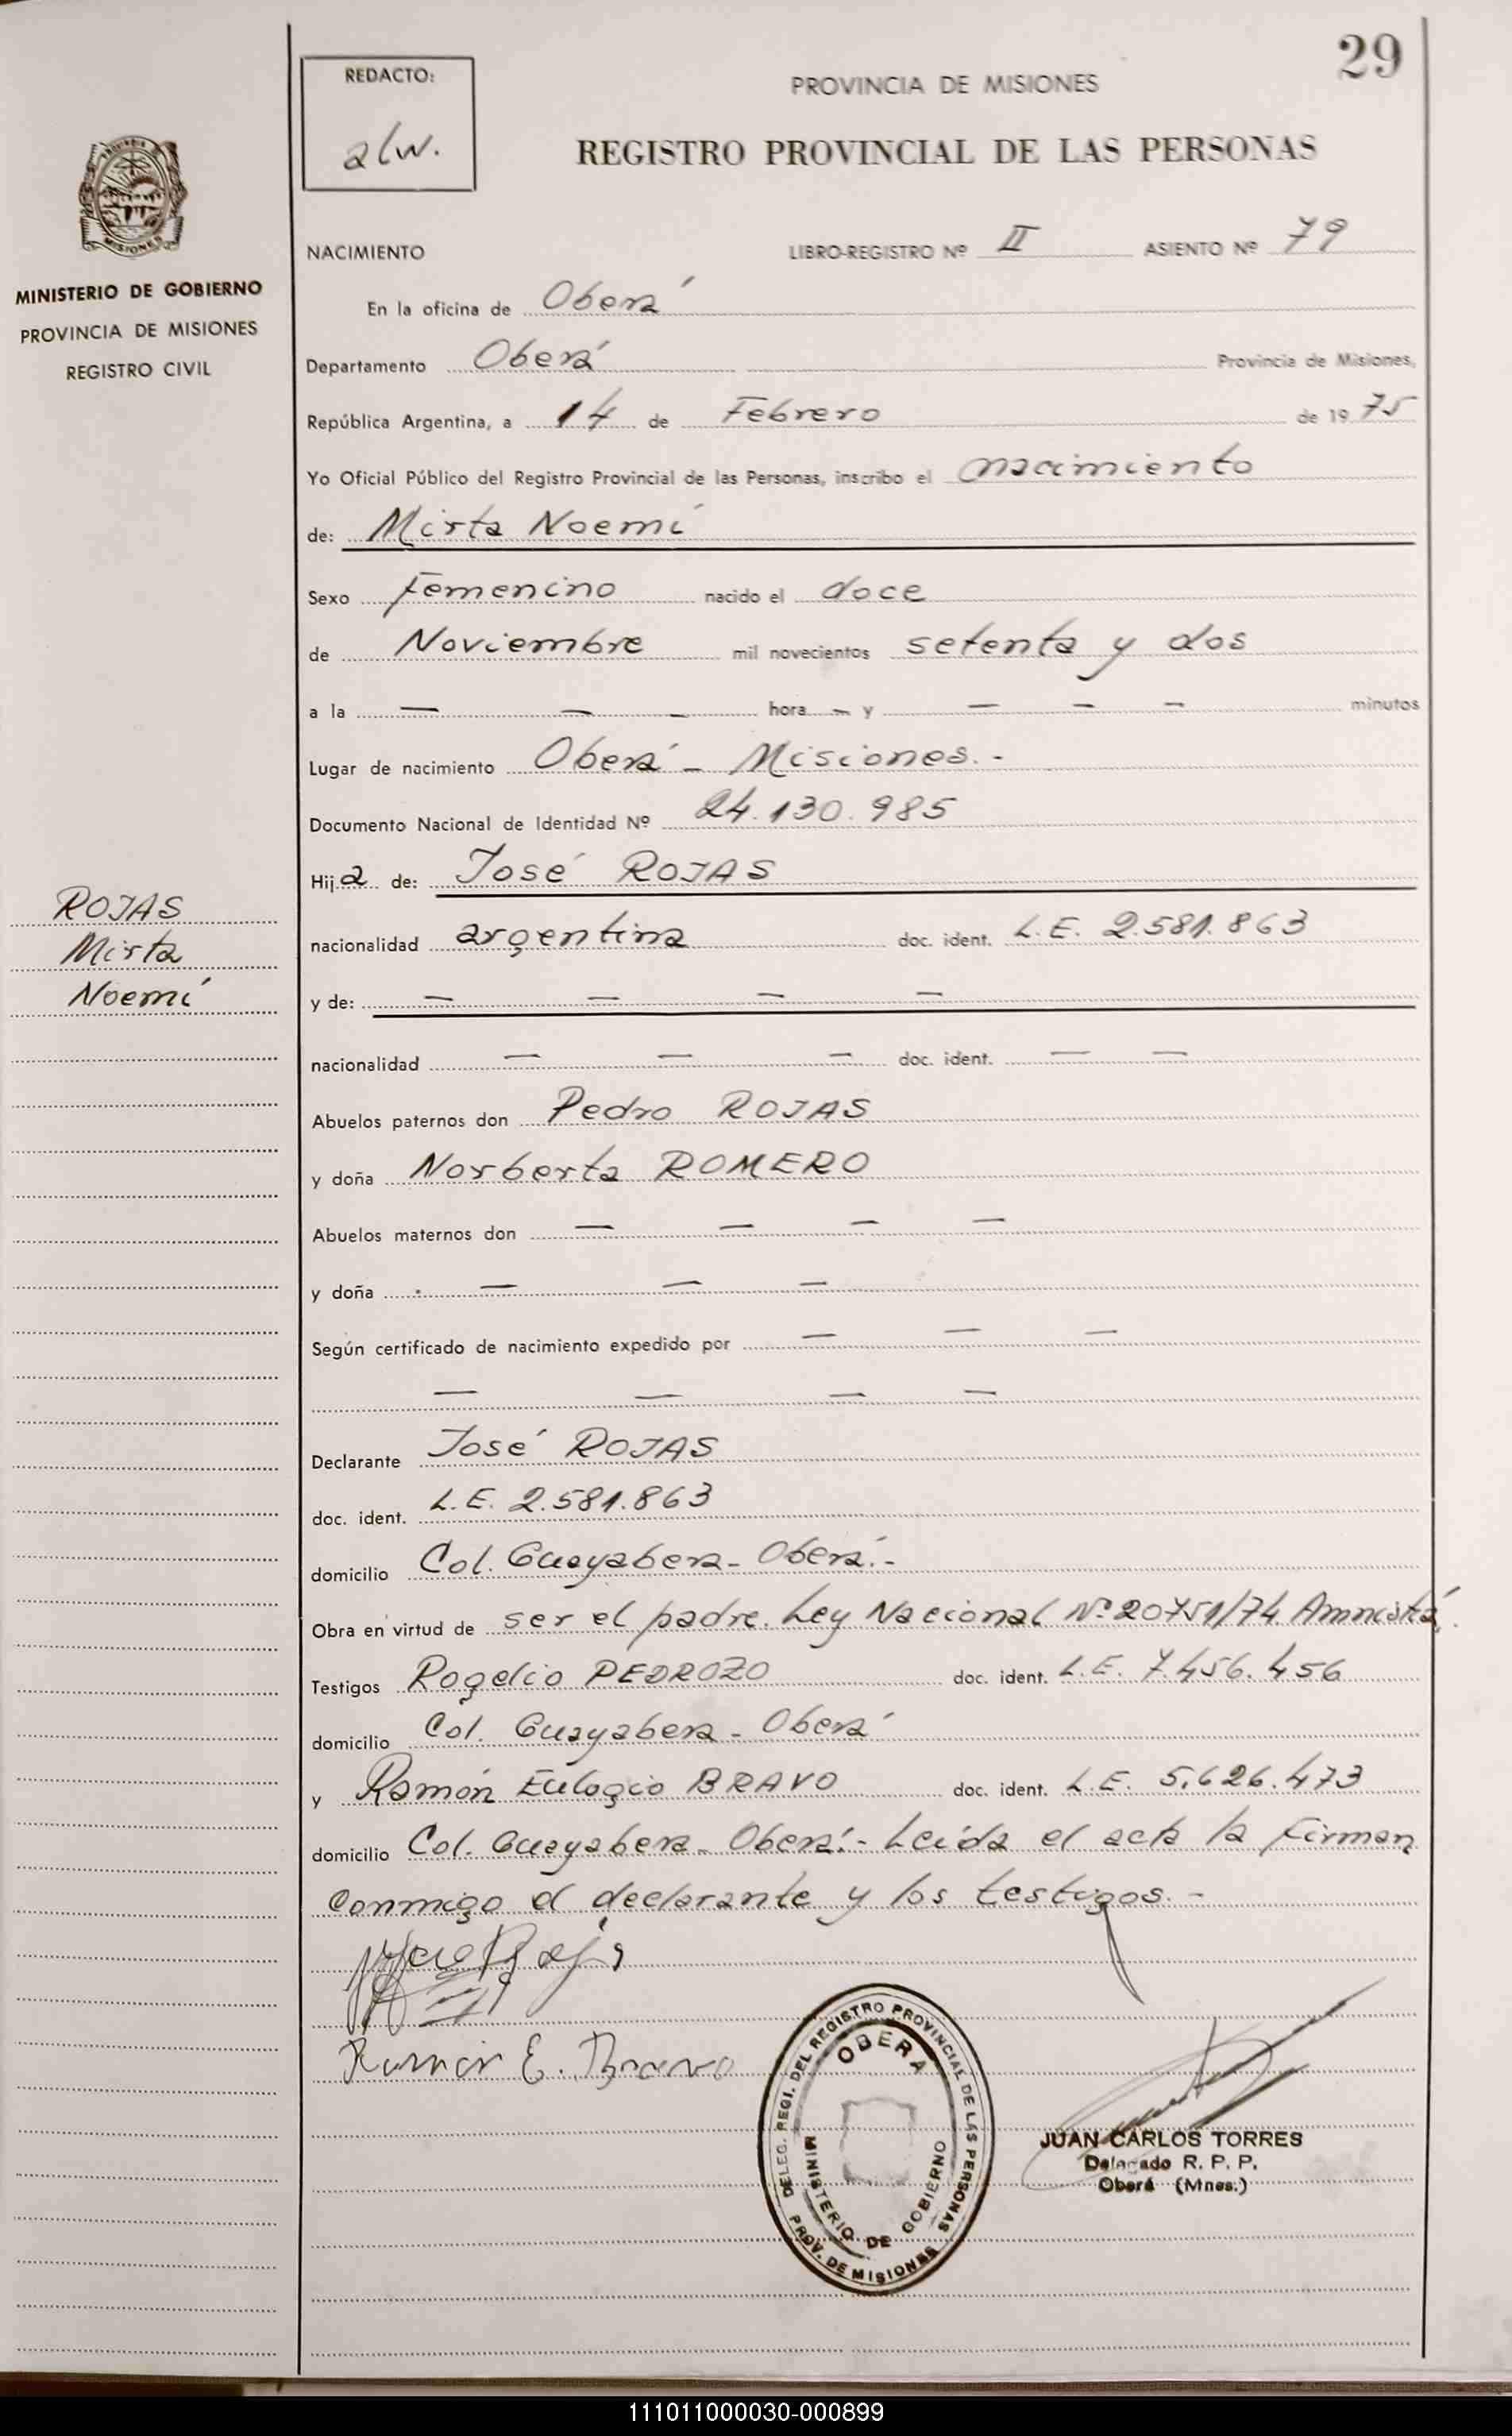 29
REDACTO:
alw.
PROVINCIA DE MISIONES
REGISTRO PROVINCIAL DE LAS PERSONAS
MISIONES
MINISTERIO DE GOBIERNO
PROVINCIA DE MISIONES
REGISTRO CIVIL
NACIMIENTO LIBRO-REGISTRO Nº II ASIENTO Nº 79
En la oficina de Oberá
Departamento Oberá Provincia de Misiones,
República Argentina, a 14 de Febrero de 1975
Yo Oficial Público del Registro Provincial de las Personas, inscribo el nacimiento
de: Mirta Noemí
Sexo Femenino nacido el doce
de Noviembre mil novecientos setenta y dos
a la — — — hora — y — — — minutos
Lugar de nacimiento Oberá - Misiones.-
Documento Nacional de Identidad Nº 24.130.985
Hija de: José ROJAS
ROJAS
Mirta
Noemí
nacionalidad argentina doc. ident. L.E. 2.581.863
y de: — — — —
nacionalidad — — — doc. ident. — —
Abuelos paternos don Pedro ROJAS
y doña Norberta ROMERO
Abuelos maternos don — — — —
y doña — — —
Según certificado de nacimiento expedido por — — —
— — — —
Declarante José ROJAS
doc. ident. L.E. 2.581.863
domicilio Col. Guayabera - Oberá.-
Obra en virtud de ser el padre. Ley Nacional Nº 20751/74 Amnistía.
Testigos Rogelio PEDROZO doc. ident. L.E. 7.456.456
domicilio Col. Guayabera - Oberá
y Ramón Eulogio BRAVO doc. ident. L.E. 5.626.473
domicilio Col. Guayabera - Oberá.- Leída el acta la firman
conmigo el declarante y los testigos.-
Ramón E. Bravo
DELEG. REGI. DEL REGISTRO PROVINCIAL DE LAS PERSONAS
OBERA
MINISTERIO DE GOBIERNO
PROV. DE MISIONES
JUAN CARLOS TORRES
Delegado R. P. P.
Oberá (Mnes.)
111011000030-000899